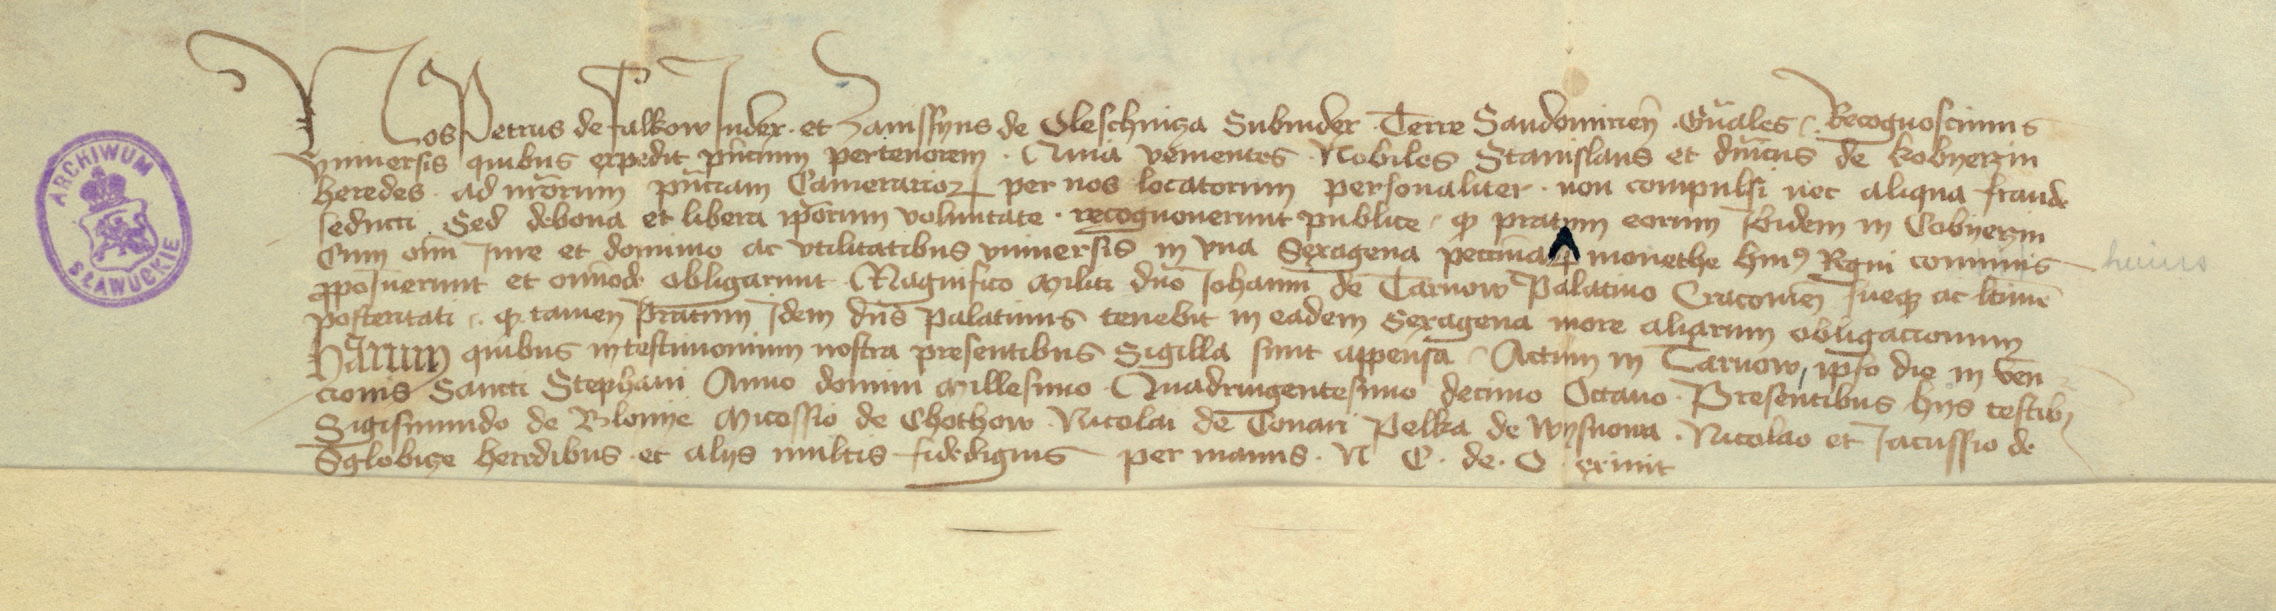 Nos Petrus de Falkow Judex · et Zawssyus de Oleschnicza Subiudex · Terre Sandomirien̄ · Gn̄ales · Recognoscimus
vniuersis quibus expedit pn̄cium pertenorem · Quia venientes · Nobiles Stanislaus et dn̄icus de kobyerzin
heredes · ad nr̄orum pn̄ciam Camerarioꝝ per nos locatorum personaliter · non compulsi nec aliqua fraude
seducti Sed debona et libera ip̄orum voluntate · recognouerunt publice · ꝙ pratum eorum Ibidem in Cobyerzin
Cum om̄i Jure et dominio ac vtilitatibus vniuersis in vna Sexagena pecunia᷒ꝝ monethe huiꝰ Regni com̄unis huius
ꝓpoſuerunt et om̄ode obligarunt Magnifico Militi dn̄o Johanni de Tarnow Palatino Cracouien̄ sueqꝫ ac ltime
posteritati · ꝙ tamen Pratum Idem dn̄s Palatinus tenebit in eadem Sexagena more aliarum obligacionum
Harum quibus intestimonium nostra presentibus Sigilla sunt appensa · Actum in Tarnow, ipso die in ven
cionis Sancti Stephani Anno domini Millesimo · Quadringentesimo decimo Octauo · Presentibus hijs testibꝫ
Sigismundo de Blonye Micossio de Chothow · Nicolai de Conari Pelka de Wysnowa · Nicolao et Jacussio de
Sglobicze heredibus · et alijs multis fidedignis per manus · N C · de · O exiuit
ARCHIWUM
SŁAWUCKIE